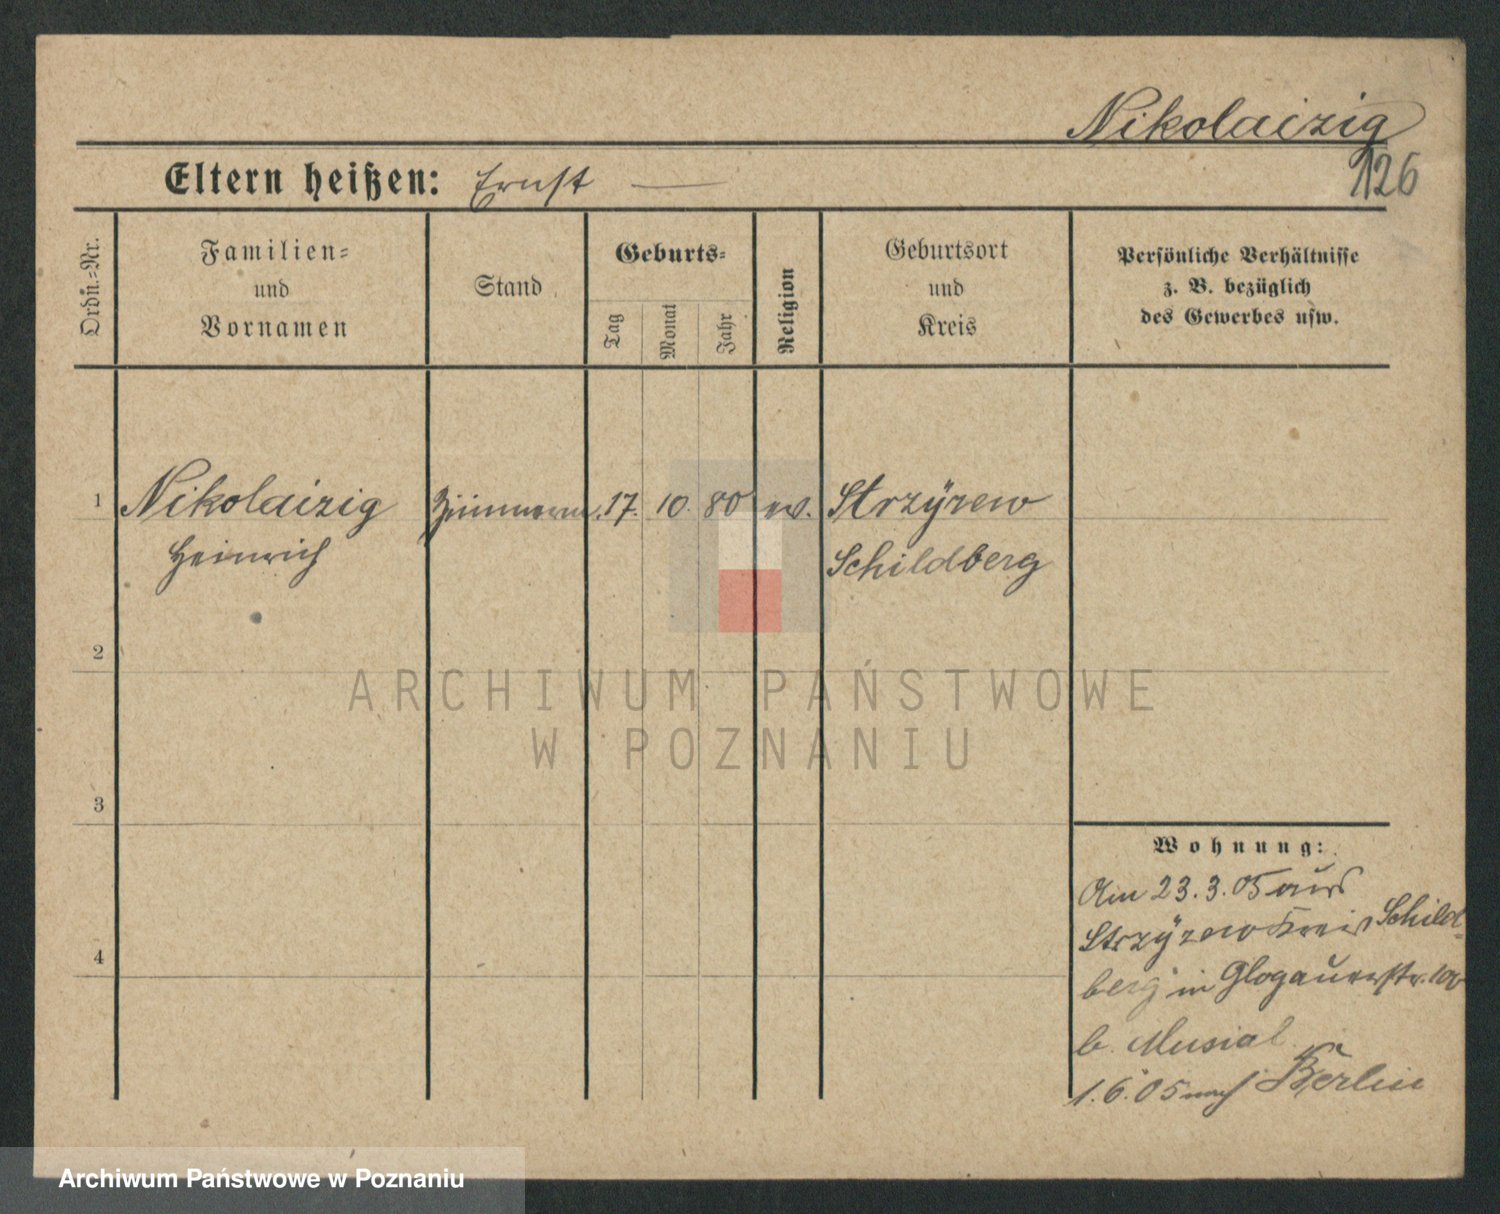 Nikolaizig
126
Eltern heißen: Ernst —
Ordn.-Nr.
Familien-
und
Vornamen
Stand
Geburts-
Tag
Monat
Jahr
Religion
Geburtsort
und
Kreis
Persönliche Verhältnisse
z. B. bezüglich
des Gewerbes usw.
1 Nikolaizig Zimmerm. 17. 10. 80 ev. Strzyzew
Heinrich Schildberg
2
ARCHIWUM PAŃSTWOWE
W POZNANIU
3
Wohnung:
Am 23.3.05 aus
Strzyzew Kreis Schild-
4
berg in Glogauerstr.
b. Musial
1.6.05 nach Berlin
Archiwum Państwowe w Poznaniu